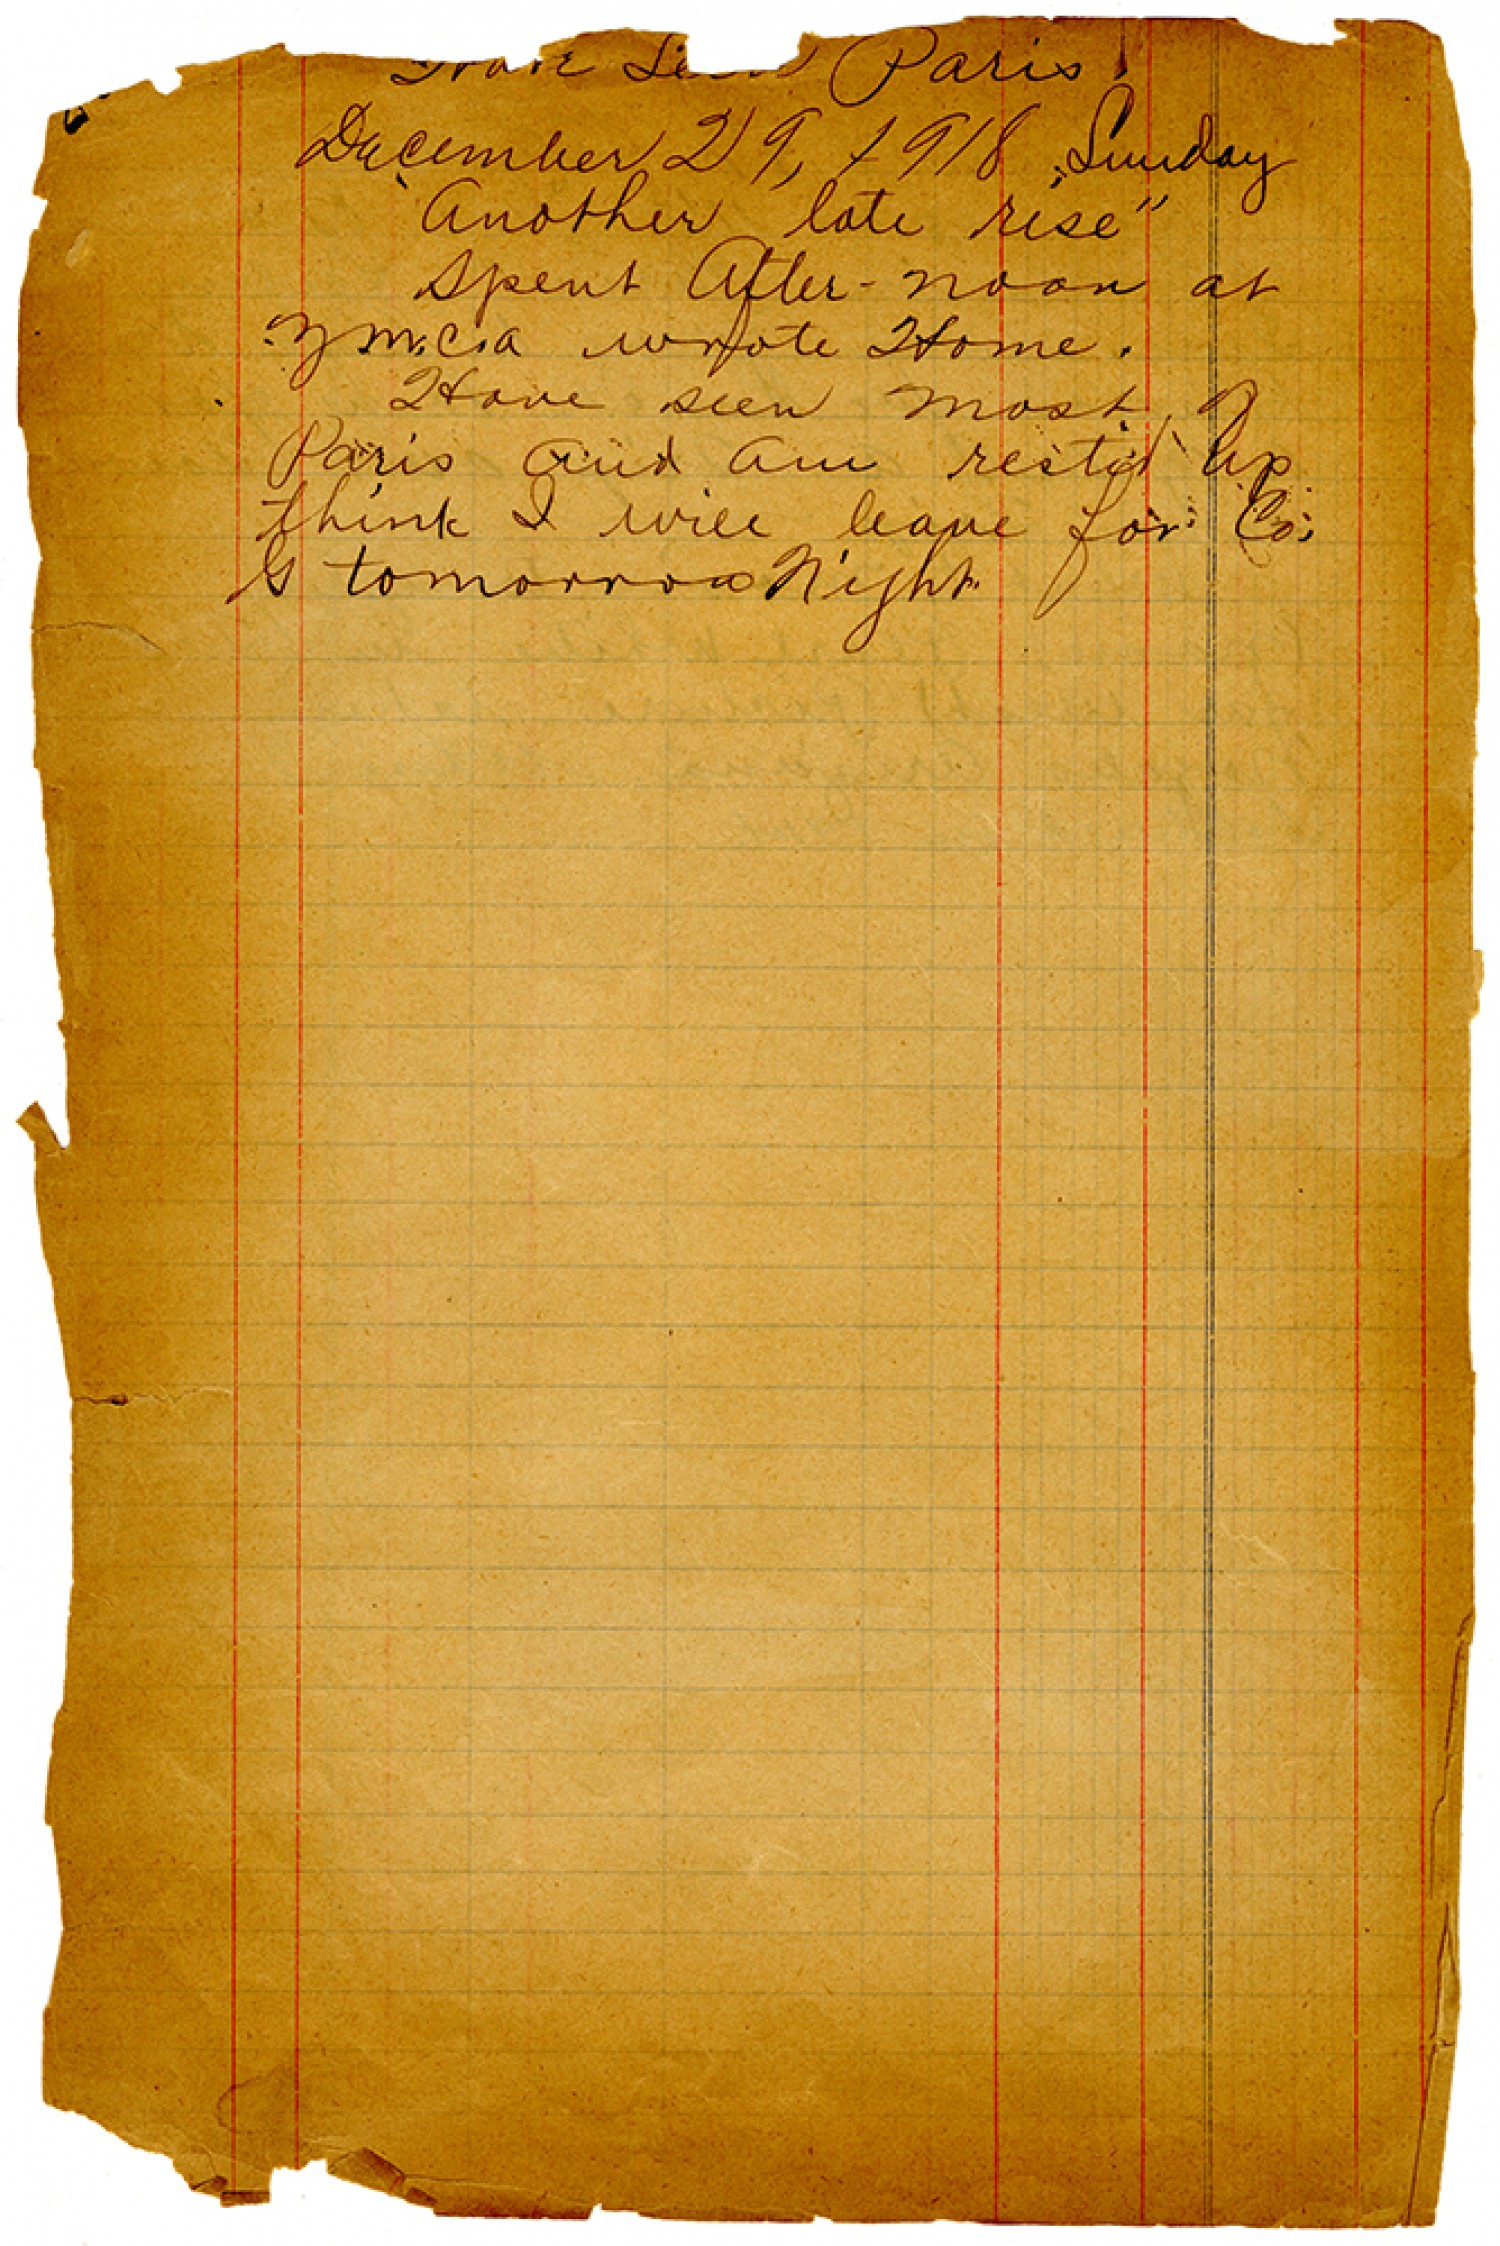 Have Seen Paris.
December 29, 1918 Sunday
"Another late rise"
Spent After-noon at
Y.M.C.A wrote Home.
Have seen most
Paris and am rested Up
think I will leave for Co.
G tomorrow Night.